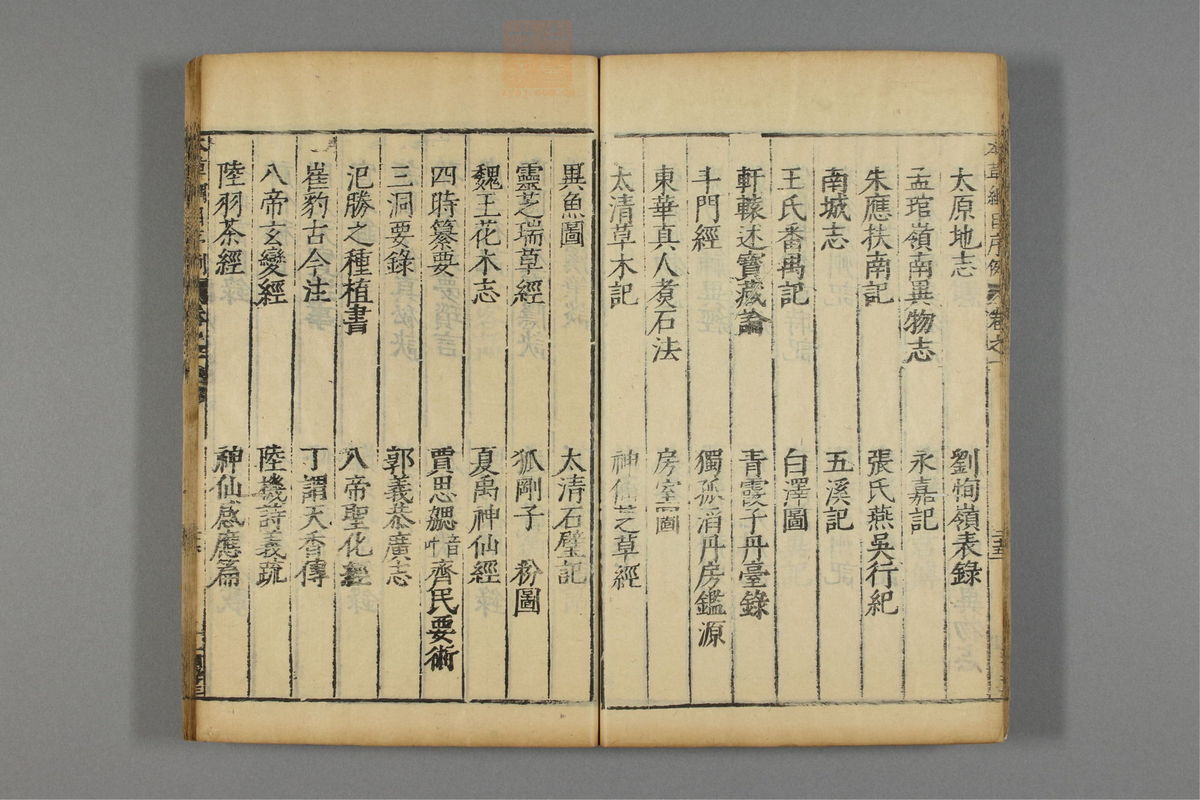 本草綱目序例 卷之一
太原地志 劉恂嶺表錄
孟琯嶺南異物志 永嘉記
朱應扶南記 張氏燕吳行紀
南城志 五溪記
王氏番禺記 白澤圖
軒轅述寶藏論 青霞子丹臺錄
斗門經 獨孤滔丹房鑑源
東華真人煑石法 房室圖
太清草木記 神仙芝草經
異魚圖 太清石璧記
靈芝瑞草經 狐剛子粉圖
魏王花木志 夏禹神仙經
四時纂要 賈思勰音叶齊民要術
三洞要錄 郭義恭廣志
氾勝之種植書 八帝聖化經
崔豹古今注 丁謂天香傳
八帝玄變經 陸機詩義疏
陸羽茶經 神仙感應篇